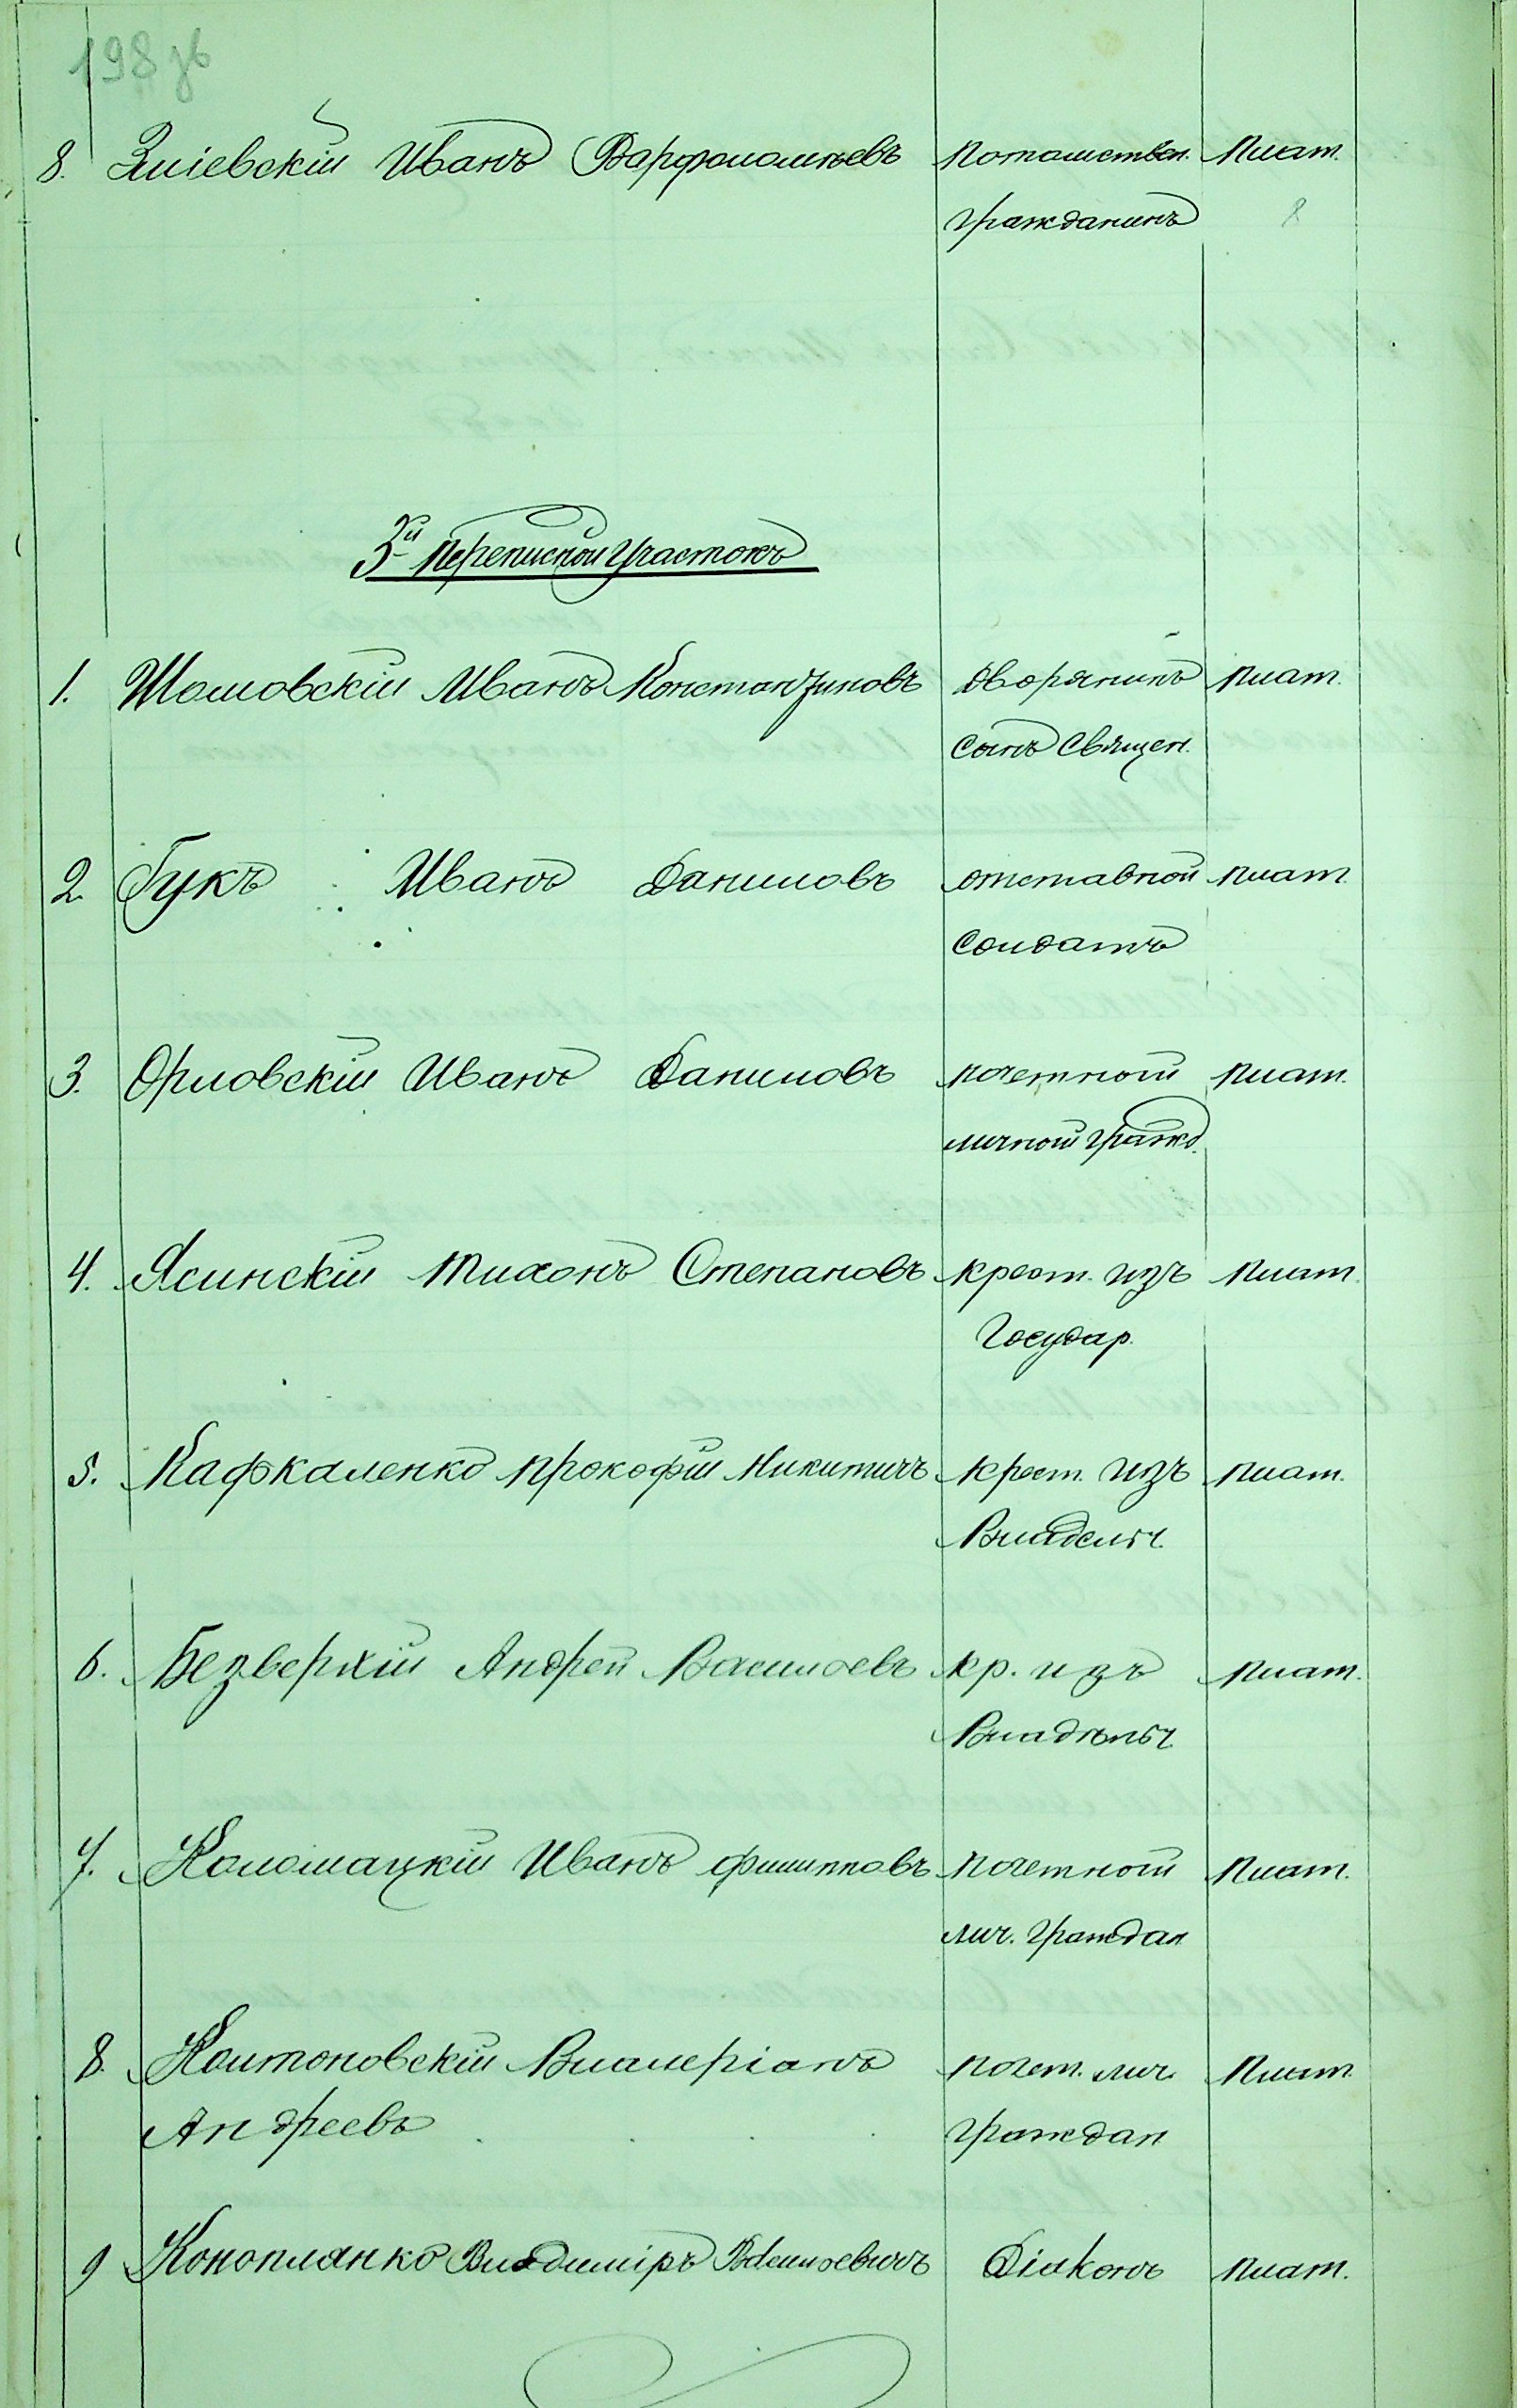 198 зв
8. Зміевскій Иванъ Варфоломѣевъ потомствен. плат.
гражданинъ 8
3й переписной участокъ
1. Шомовскій Иванъ Константиновъ дворянинъ плат.
сынъ священ.
2. Гукъ Иванъ Даниловъ отставной плат.
солдатъ
3. Орловскій Иванъ Даниловъ почетной плат.
личной гражд.
4. Ясинскій Тихонъ Степановъ крест. изъ плат.
Государ.
5. Кафкаленко Прокофій Никитичъ крест. изъ плат.
Владельч.
6. Безверхій Андрей Васильевъ кр. изъ плат.
Владѣльч.
7. Коломацкій Иванъ Филипповъ почетной плат.
лич. граждан
8. Колтоновскій Влалеріанъ почет. лич. плат.
Андреевъ граждан
9 Коноплянко Владиміръ Васильевичъ Діаконъ плат.